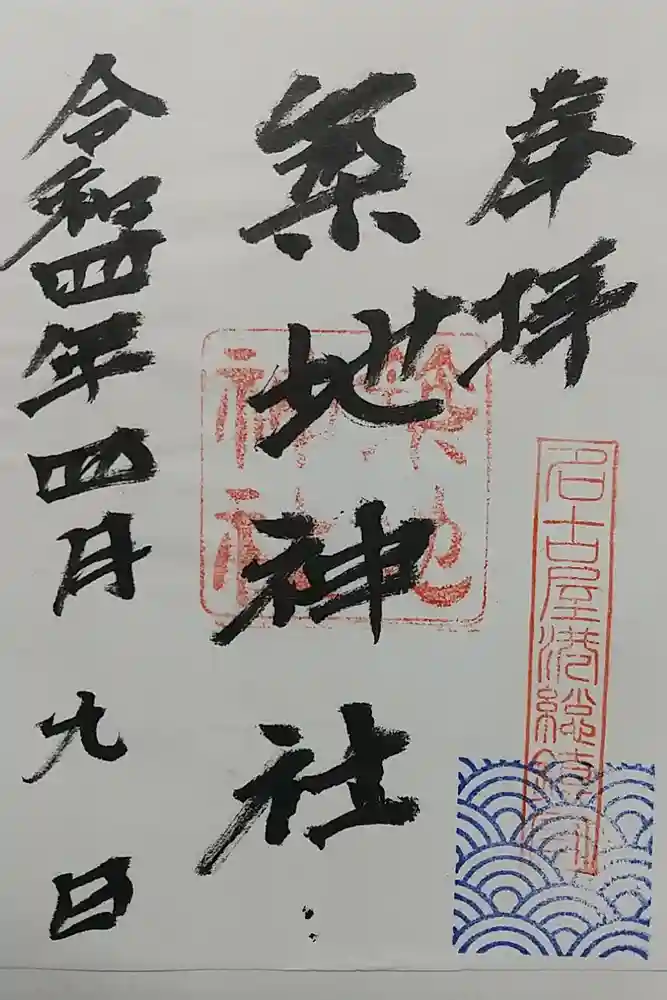 奉拝
名古屋港総鎮守
築地神社
築地神社
令和四年四月九日